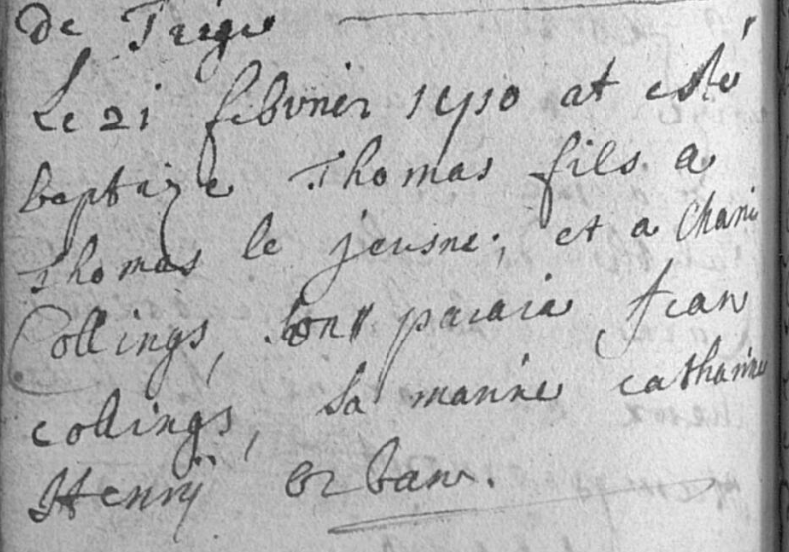 de Treges
Le 21 febvrier 1710 at esté
baptize Thomas fils a
Thomas le jeusne, et a
Collings, son Jean
collings, sa marine catharine
Henry